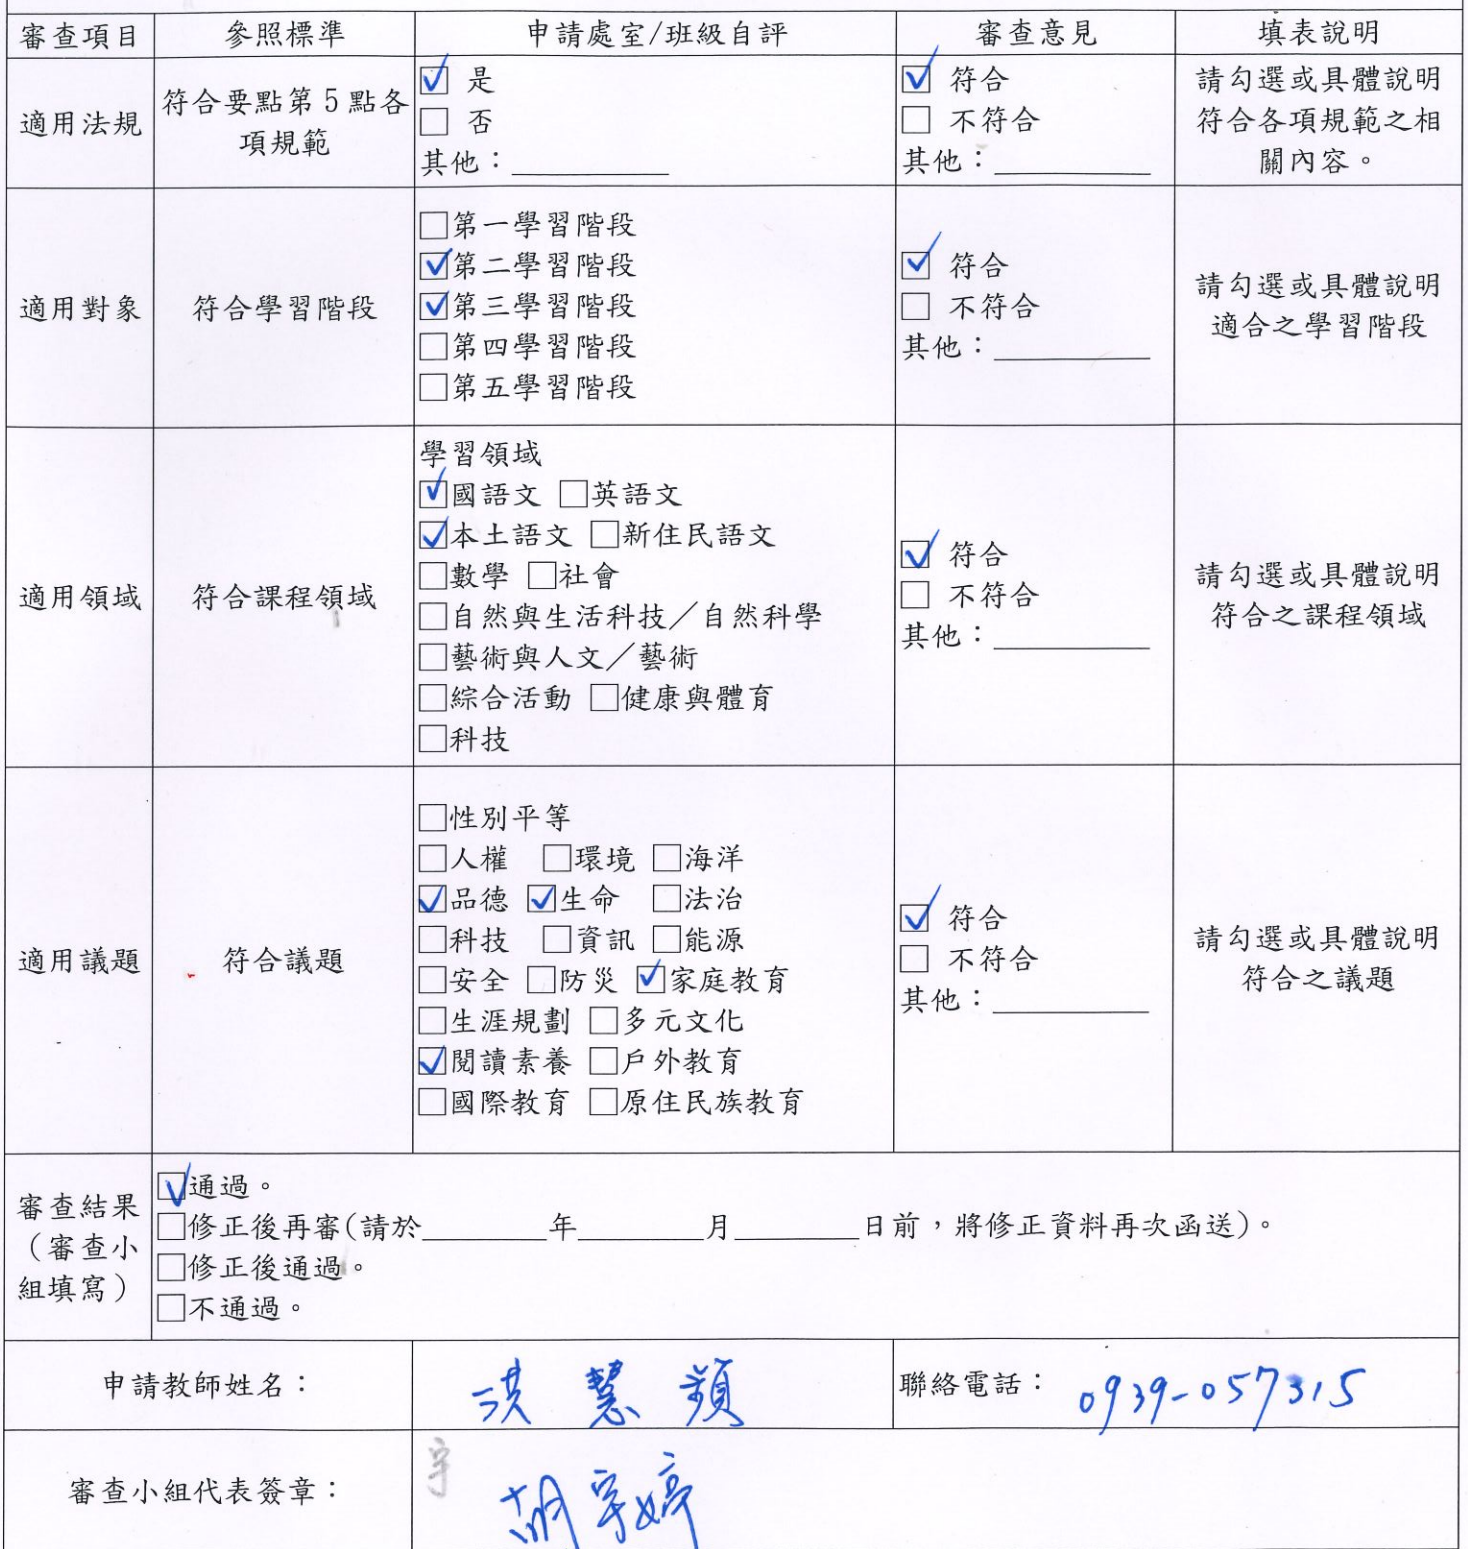 審查項目 參照標準 申請處室/班級自評 審查意見 填表說明
適用法規
符合要點第5點各
項規範
☑ 是
□ 否
其他：__________
☑ 符合
□ 不符合
其他：__________
請勾選或具體說明
符合各項規範之相
關內容。
適用對象
符合學習階段
□第一學習階段
☑第二學習階段
☑第三學習階段
□第四學習階段
□第五學習階段
☑ 符合
□ 不符合
其他：__________
請勾選或具體說明
適合之學習階段
適用領域
符合課程領域
學習領域
☑國語文 □英語文
☑本土語文 □新住民語文
□數學 □社會
□自然與生活科技／自然科學
□藝術與人文／藝術
□綜合活動 □健康與體育
□科技
☑ 符合
□ 不符合
其他：__________
請勾選或具體說明
符合之課程領域
適用議題
符合議題
□性別平等
□人權 □環境 □海洋
☑品德 ☑生命 □法治
□科技 □資訊 □能源
□安全 □防災 ☑家庭教育
□生涯規劃 □多元文化
☑閱讀素養 □戶外教育
□國際教育 □原住民族教育
☑ 符合
□ 不符合
其他：__________
請勾選或具體說明
符合之議題
審查結果
（審查小
組填寫）
☑通過。
□修正後再審(請於________年________月________日前，將修正資料再次函送)。
□修正後通過。
□不通過。
申請教師姓名： 洪慧穎 聯絡電話： 0939-057315
審查小組代表簽章： 胡宇婷
宇